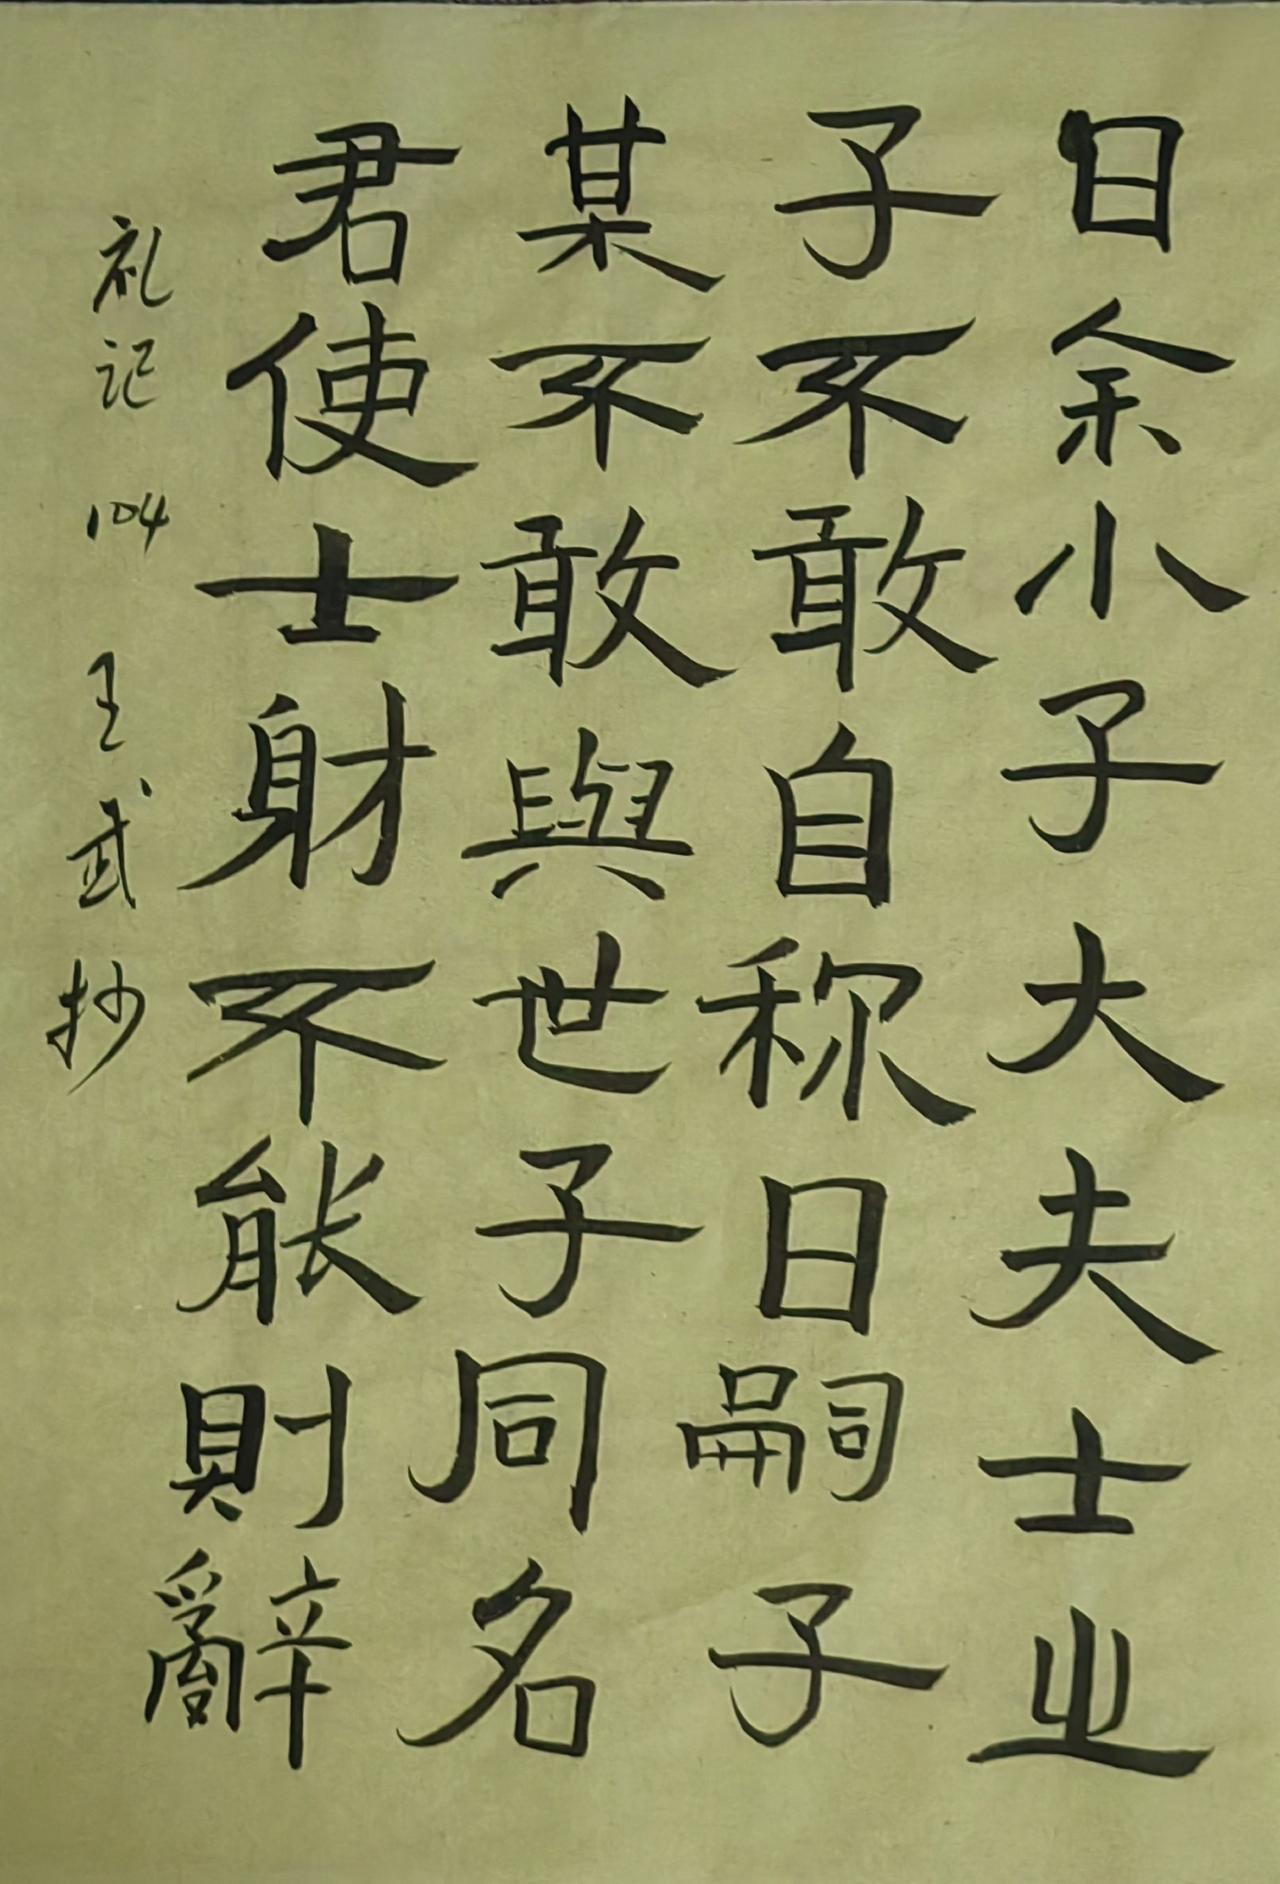 曰余小子大夫士之
子不敢自称曰嗣子
某不敢與世子同名
君使士射不能則辭
礼记 104 王武抄